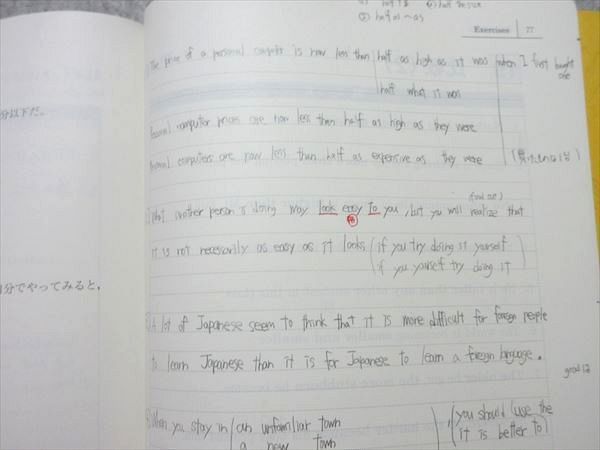 ② half as ~ as
Exercises 77
The price of a personal computer is now less than half as high as it was when I first bought one
half what it was
Personal computer prices are now less than half as high as they were
Personal computers are now less than half as expensive as they were
分以下だ。
What another person is doing may look easy to you, but you will realize that
it is not necessarily as easy as it looks (if you try doing it yourself
if you yourself try doing it
分でやってみると,
A lot of Japanese seem to think that it is more difficult for foreign people
to learn Japanese than it is for Japanese to learn a foreign language.
When you stay in an unfamiliar town you should (use the
a new town it is better to)